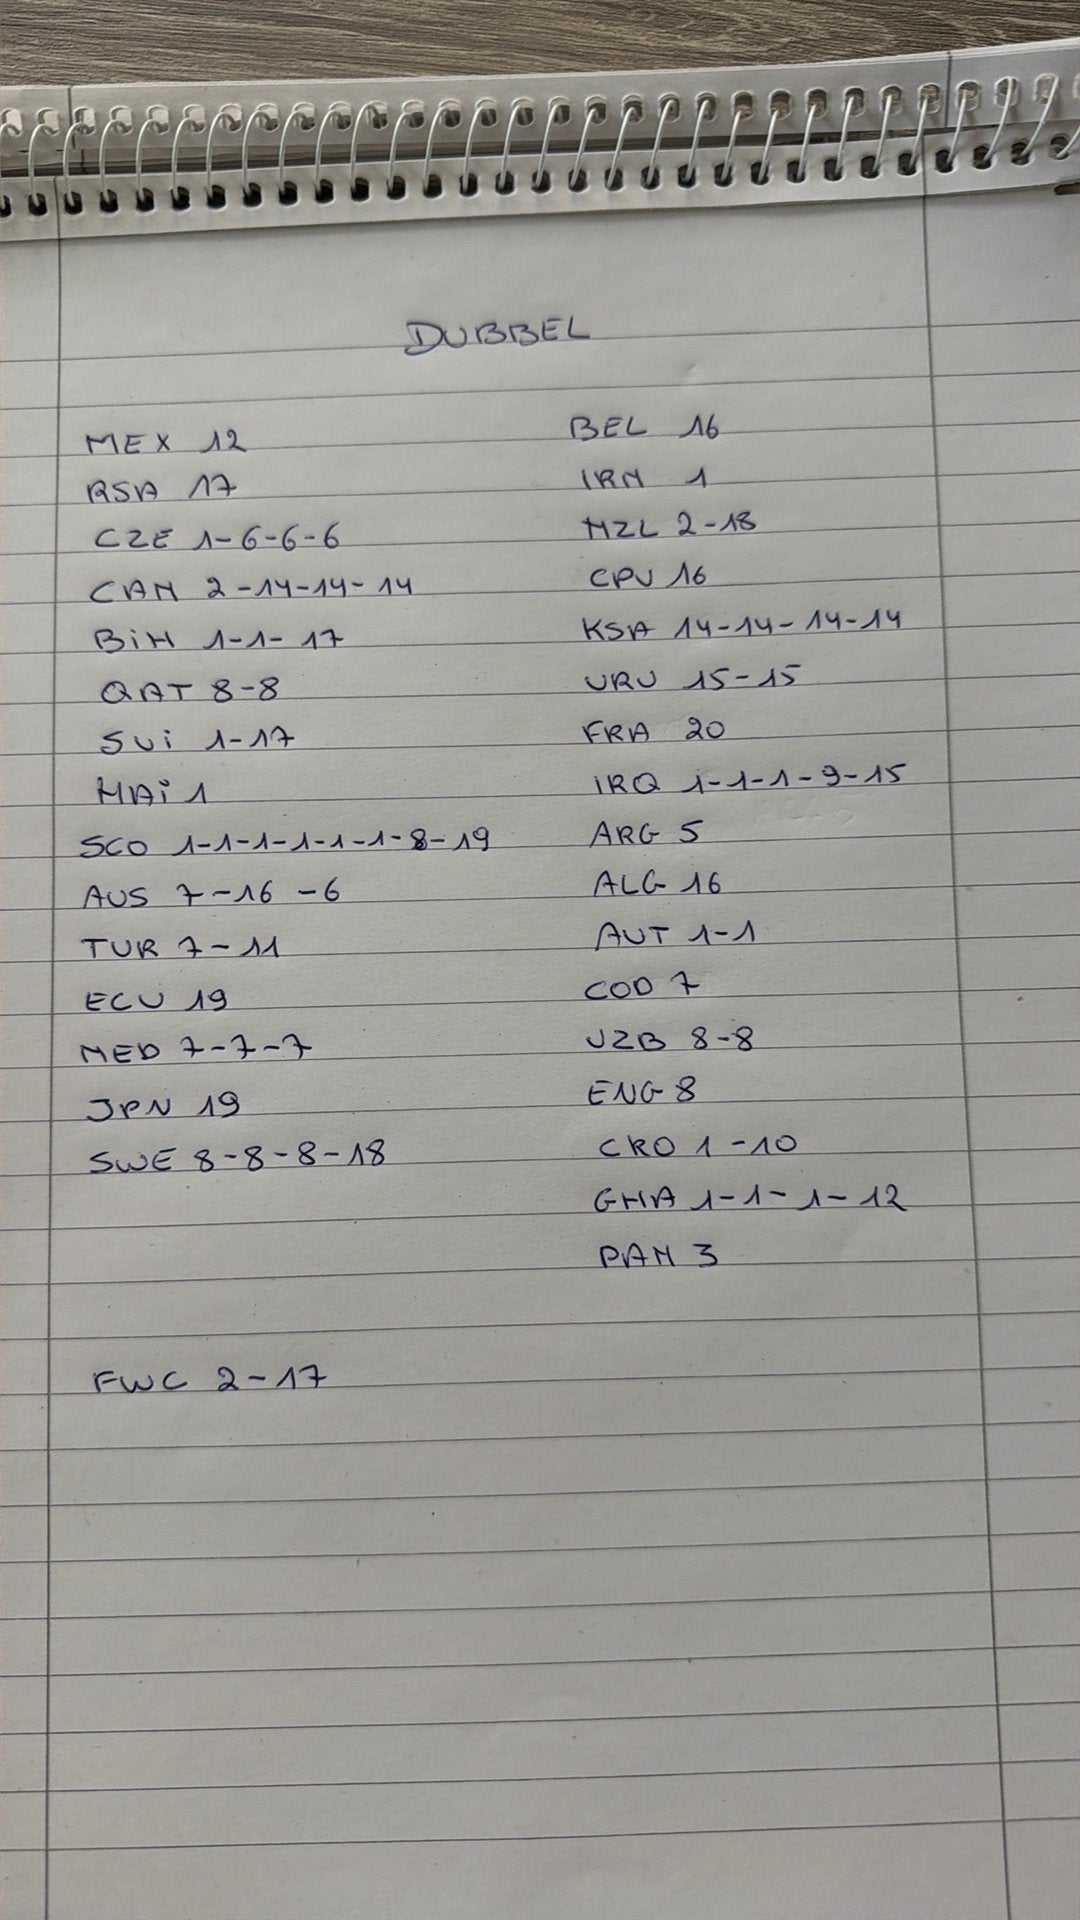 DUBBEL
MEX 12
RSA 17
CZE 1-6-6-6
CAN 2-14-14-14
BiH 1-1-17
QAT 8-8
SUi 1-17
HAi 1
SCO 1-1-1-1-1-1-8-19
AUS 7-16-6
TUR 7-11
ECU 19
NED 7-7-7
JPN 19
SWE 8-8-8-18
BEL 16
IRN 1
NZL 2-18
CPV 16
KSA 14-14-14-14
URU 15-15
FRA 20
IRQ 1-1-1-9-15
ARG 5
ALG 16
AUT 1-1
COD 7
UZB 8-8
ENG 8
CRO 1-10
GHA 1-1-1-12
PAN 3
FWC 2-17